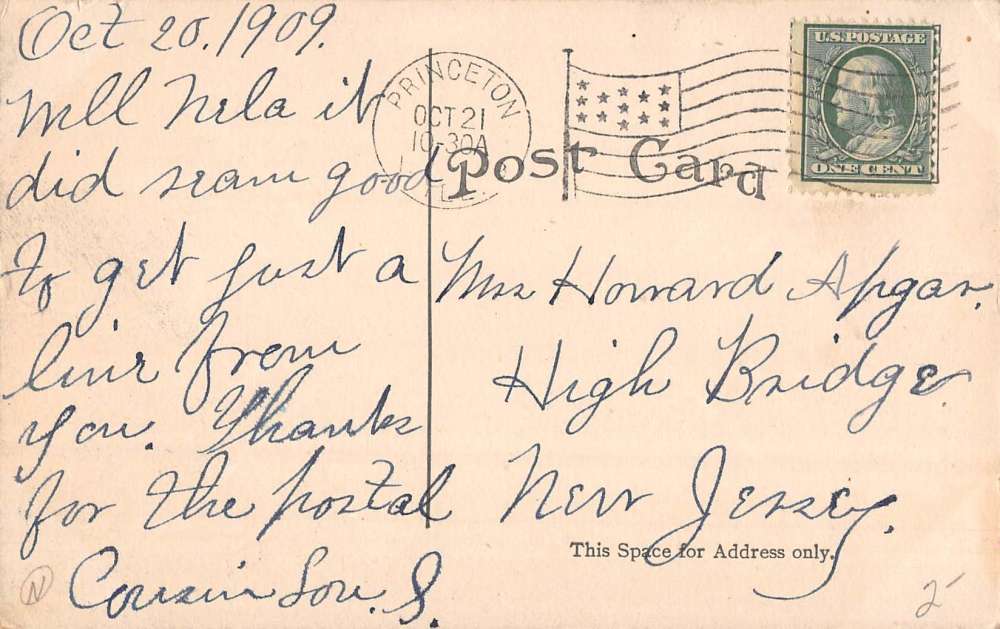 Oct 20. 1909.
Well Nela it
did seam good
to get just a
line from
you. Thanks
for the postal
Cousin Lou. S.
PRINCETON
OCT 21
10-30A
ILL.
U.S. POSTAGE
ONE CENT
Post Card
Mrs Howard Apgar.
High Bridge
New Jersey.
This Space for Address only.
N
2